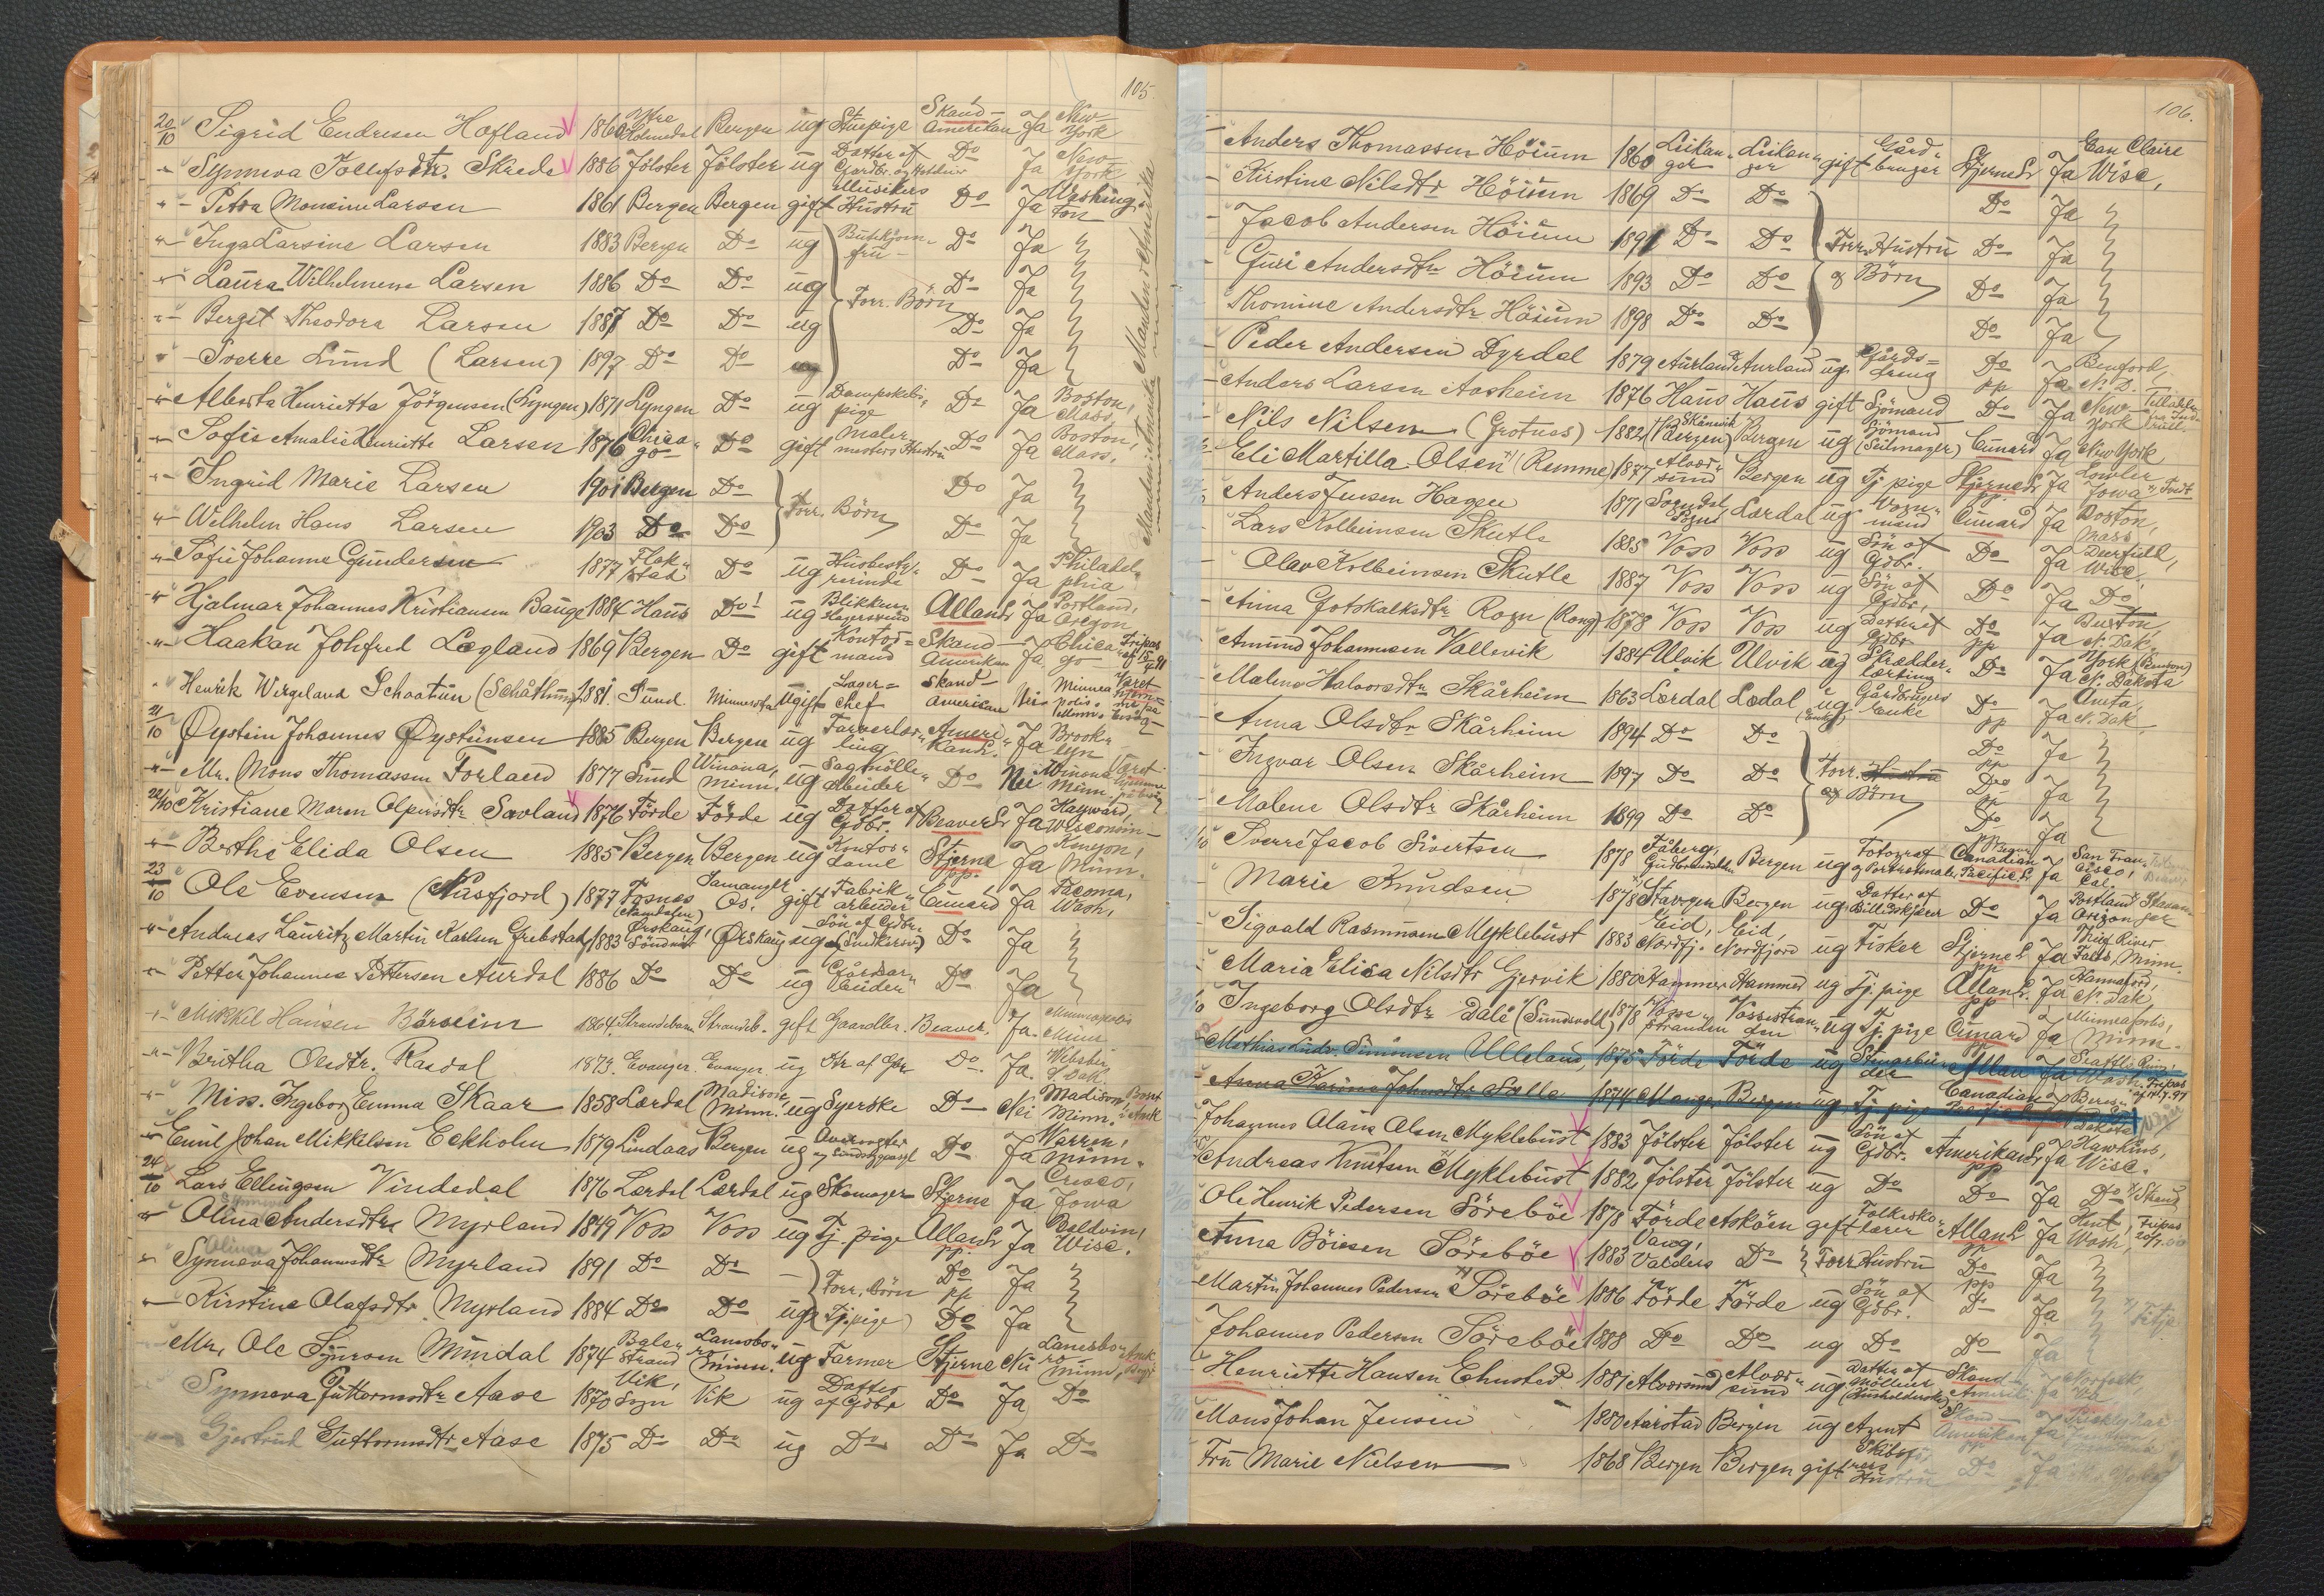 105.
20/10 Sigrid Endresen Hofland 1860 Ytre Holmedal Bergen ug Stuepige Skand- Amerikan Ja New York
" - Synneva Jollefsdtr. Skrede 1886 Jölster Jölster ug Datter af Gardbr. Do Ja New York
" - Petra Monsine Larsen 1861 Bergen Bergen gift Musikers Hustru Do Ja Washington
" - Inga Larsine Larsen 1883 Bergen Do ug Butikjomfru Do Ja "
" - Laura Wilhelmene Larsen 1886 Do Do ug Forr. Börn Do Ja "
" - Bergit Theodora Larsen 1887 Do Do ug Do Ja "
" - Sverre Lund (Larsen) 1897 Do Do Do Ja "
" - Alberta Henrietta Jörgensen (Lyngen) 1871 Lyngen Do ug Dampskibspige Do Ja Boston, Mass.
" - Sofie Amalie Henriette Larsen 1876 Chicago Do gift Malermesters Hustru Do Ja Boston, Mass.
" - Ingrid Marie Larsen 1901 Bergen Do Forr. Börn Do Ja "
" - Wilhelm Hans Larsen 1903 Do Do Do Ja "
" - Sofie Johanne Gundersen 1877 Flakstad Do ug Husbestyrerinde Do Ja Philadelphia
" - Hjalmar Johannes Kristiansen Bauge 1884 Haus Do ug Allan L Ja Portland, Oregon
" - Haakon Johfred Lægland 1869 Bergen Do gift Kontormand Skand- Amerikan Ja Chicago Fripas
" Henrik Wergeland Schaatun (Schåthun) 1881. Sund Minnesota Ugift Lagerchef Skand- American Nei Minneapolis Minn.
21/10 Øystein Johannes Øystensen 1885 Bergen Bergen ug Farverlærling Amerikansk L. Ja Brooklyn
" - Mr. Mons Thomassen Forland 1877 Sund Winona, Minn. ug Sagmölle Arbeider Do Nei Winona Minn.
22/10 Kristiane Maren Olpersdtr Savland 1876 Förde Förde ug Datter af Gdbr. Beaver L Ja Hayward, Wisconsin
" - Berthe Elida Olsen 1885 Bergen Bergen ug Kontordame Stjerne pp. Ja Kenyon, Minn.
23/10 Ole Evensen (Husfjord) 1877 Fosnes (Namdalen) Samanger Os. gift Fabrik arbeider Cunard Ja Tacoma, Wash,
" - Andreas Lauritz Martin Karlsen Grebstad 1883 Ørskaug, Söndmör Ørskaug ug Sön af Gdbr. (Snedkersv) Do Ja "
" - Petter Johannes Pettersen Aurdal 1886 Do Do ug Gårdarbeider Do Ja "
" - Mikkel Hansen Börsheim 1864. Strandebarm Strandeb. gift Gaardbr. Beaver. Ja. Minneapolis Minn
" - Britha Olsdtr. Rasdal 1873. Evanger. Evanger. ug Dtr. af Gbr Do. Ja. Webster S. Dak.
" - Miss. Ingebor Emma Skaar 1858 Lærdal Madison, Minn. ug Syerske Do Nei Madison Minn.
" - Emil Johan Mikkelsen Eckholm 1879 Lindaas Bergen ug Do Ja Warren, Minn.
24/10 Lars Ellingsen Vindedal 1876 Lærdal Lærdal ug Skomager Stjerne Ja Cresco, Iowa
" Olina Andersdtr Myrland 1849 Voss Voss ug Tj. pige Allan L pp. Ja Baldwin, Wisc.
" - Synneva Johannesdtr Myrland 1891 Do Do - Forr. Börn Do pp Ja "
" - Kirstine Olafsdtr. Myrland 1884 Do Do ug (Tj. pige) Do Ja "
Mr. Ole Sjursen Mundal 1874 Balestrand Lanesboro, Minn. ug Farmer Stjerne Nei Lanesboro Minn.
Synneva Guttormsdtr Aase 1870 Vik, Sogn Vik ug Datter af Gdbr Do Ja Do
" - Gjertrud Guttormsdtr Aase 1875 Do Do ug Do Do Ja Do
106.
Anders Thomassen Höium 1860 Leikanger Leikanger gift Gårdbruger Stjerne L Ja Eau Claire Wisc,
Kirstine Nilsdtr Höium 1869 Do Do Do Ja "
Jacob Andersen Höium 1891 Do Do Forr. Hustru Do Ja "
Guri Andersdtr Höium 1893 Do Do & Börn Do Ja "
Thomine Andersdtr Höium 1898 Do Do Do Ja "
Peder Andersen Dyrdal 1879 Aurland Aurland ug. Gårdsdreng Do pp Ja Benford, N. D.
Anders Larsen Aasheim 1876 Haus Haus gift Sjömand Do Ja New York
Nils Nilsen (Grotnes) 1882 Skånevik (Bergen) Bergen ug Sjömand (Seilmager) Cunard Ja New York
Eli Martilla Olsen (Remme) 1877 Alversund Bergen ug Tj. pige Stjerne L pp. Ja Iowa
Anders Jensen Haggen 1871 Sogndal Sogn Lærdal ug Vognmand Cunard Ja Boston, Mass
Lars Kolbeinsen Skutle 1885 Voss Voss ug Sön af Gdbr. Do Ja Deerfield, Wisc.
Olav Kolbeinsen Skutle 1887 Voss Voss ug Sön af Gdbr. Do Ja Do
Anna Gotskalksdtr Rogn (Rong) 1878 Voss Voss ug Datter af Gdbr Do pp Ja Buxton, N. Dak.
Amund Johannesen Vallevik 1884 Ulvik Ulvik ug Skrædderlærling Do Ja York N. Dakota
Malene Halvorsdtr Skårheim 1863 Lærdal Lædal ug (Enke) Gårdbrugers Enke Do pp Ja Aneta, N. Dak
Anna Olsdtr Skårheim 1894 Do Do Do pp Ja "
Ingvar Olsen Skårheim 1897 Do Do Forr. Hustru & Börn Do pp Ja "
Malene Olsdtr Skårheim 1899 Do Do Do pp Ja "
Sverre Jacob Sivertsen 1878 Fåberg, Gudbrandsdalen Bergen ug Fotograf & Portrætmaler Canadian Pacific L Ja San Francisco, Cal.
Marie Knudsen 1878 Stavanger Bergen ug. Datter af Do Ja Portland Oregon
Sigvald Rasmussen Myklebust 1883 Eid, Nordfj. Eid, Nordfjord ug Fisker Stjerne L pp Ja Thief River Falls, Minn.
Maria Elisa Nilsdtr Gjervik 1880 Hammer Hammer ug Tj. pige Allan L. pp Ja Hannaford, N. Dak.
Ingeborg Olsdtr Dale (Sundsvold) 1878 Vossestranden Vossestranden ug Tj. pige Cunard pp Ja Minneapolis, Minn.
Mathias Andr. Simonsen Ulleland, 1875 Förde Förde ug Stenarbeider Allan Ja Seattle Wash.
Anna Karina Johnsdtr Solle 1874 Manger Bergen ug Tj. pige Canadian Pacific Ja
Johannes Olaus Olsen Myklebust 1883 Jölster Jölster ug Sön af Gdbr. Amerikansk L pp Ja Hawkins, Wisc.
Andreas Knutsen Myklebust 1882 Jölster Jölster ug Do Do Ja Do
Ole Henrik Pedersen Söreböe 1878 Förde Asköen gift Folkeskolærer Allan L pp Ja Kent, Wash,
Anna Böiesen Söreböe 1883 Vang, Valders Do " Forr. Hustru Do pp Ja "
Martin Johannes Pedersen Söreböe 1886 Förde Förde ug Sön af Gdbr. Do Ja "
Johannes Pedersen Söreböe 1888 Do Do ug Do Do Ja "
Henriette Hansen Ehnsted 1881 Alversund Alversund ug Datter af Möller (Husholderske) Skand- Amerik. Ja Norfolk,
Mons Johan Jensen 1850 Aarstad Bergen ug Agent Skand- Amerikan pp Ja
Fru Marie Nielsen 1868 Bergen Bergen gift Skibsförers Hustru Do Ja